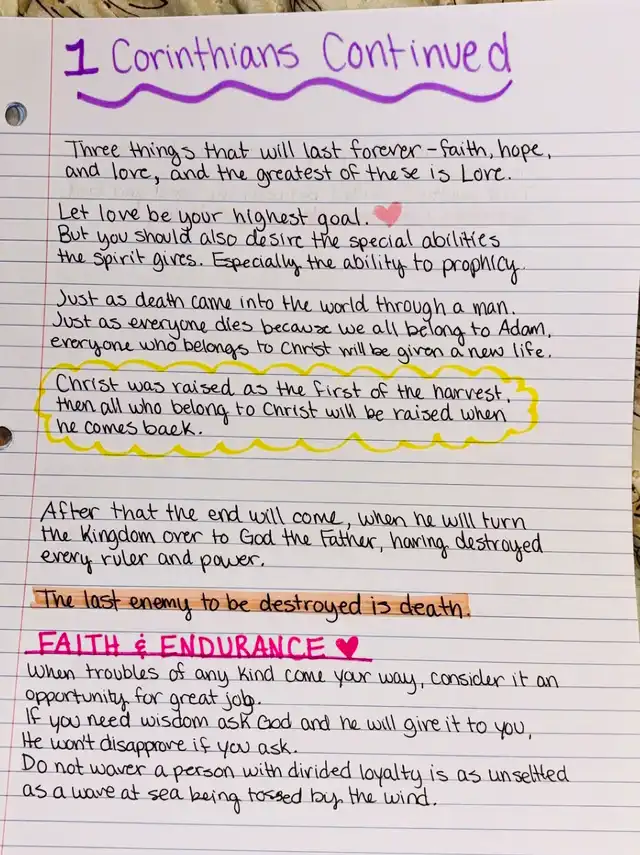 1 Corinthians Continued
Three things that will last forever - faith, hope,
and love, and the greatest of these is Love.
Let love be your highest goal.
But you should also desire the special abilities
the spirit gives. Especially the ability to prophicy.
Just as death came into the world through a man.
Just as everyone dies because we all belong to Adam,
everyone who belongs to Christ will be given a new life.
Christ was raised as the first of the harvest,
then all who belong to Christ will be raised when
he comes back.
After that the end will come, when he will turn
the Kingdom over to God the Father, having destroyed
every ruler and power.
The last enemy to be destroyed is death.
FAITH & ENDURANCE
When troubles of any kind come your way, consider it an
opportunity for great job.
If you need wisdom ask God and he will give it to you,
He won't disapprove if you ask.
Do not waver a person with divided loyalty is as unsettled
as a wave at sea being tossed by the wind.